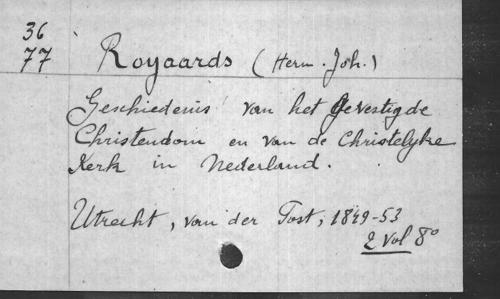 36
77
Royaards (Herm. Joh.)
Geschiedenis van het gevestigde
Christendom en van de Christelyke
Kerk in Nederland.
Utrecht, van der Post, 1849-53
2 vol 8°